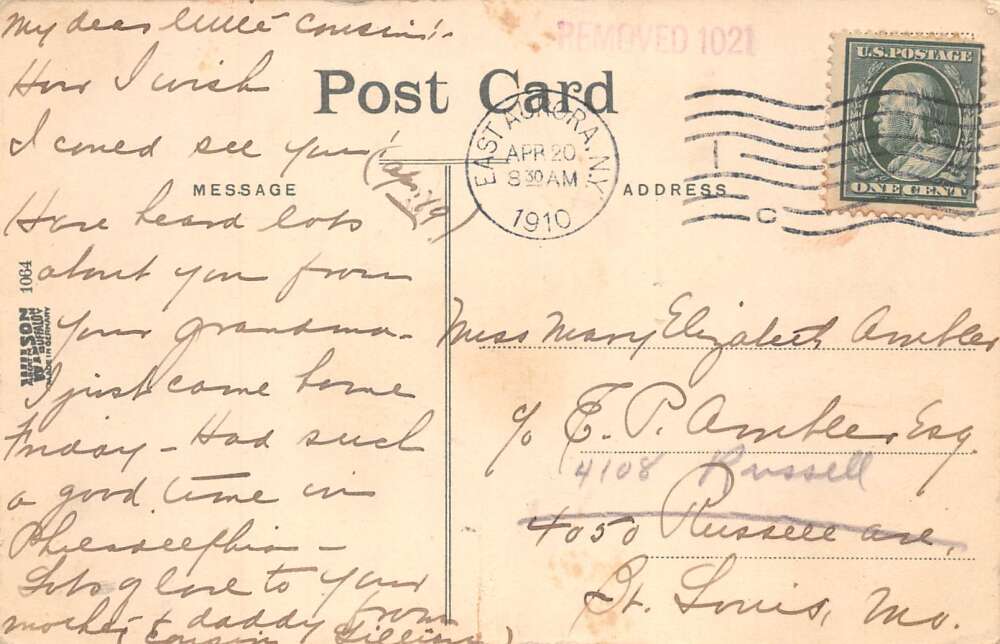 My dear little cousin! -
How I wish
I could see you!
(April 19)
Have heard lots
about you from
your grandma -
I just came home
Friday - Had such
a good time in
Philadelphia -
Lots of love to your
mother & daddy from
Cousin
REMOVED 1021
Post Card
MESSAGE
ADDRESS
EAST AURORA, N.Y.
APR 20
8 30 AM
1910
U.S. POSTAGE
ONE CENT
1064
WILLSON
BUFFALO
MADE IN GERMANY
Miss Mary Elizabeth Ambler
c/o E. P. Ambler, Esq.
4108 Russell
4050 Russell ave,
St. Louis, Mo.